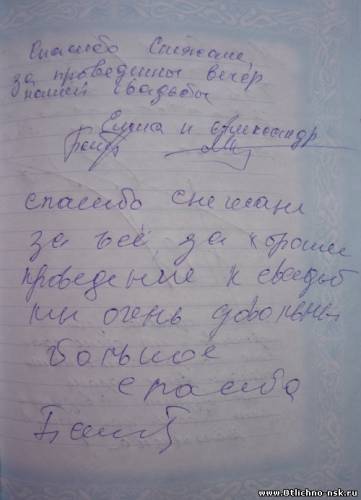 Спасибо Снежане,
за проведенны вечер
нашей свадьбы
Елена и Александр
спасибо снежан
за всё, за хороше
проведение к свадьб
мы очень довольны
большое
спасибо
www.0tlichno-nsk.ru